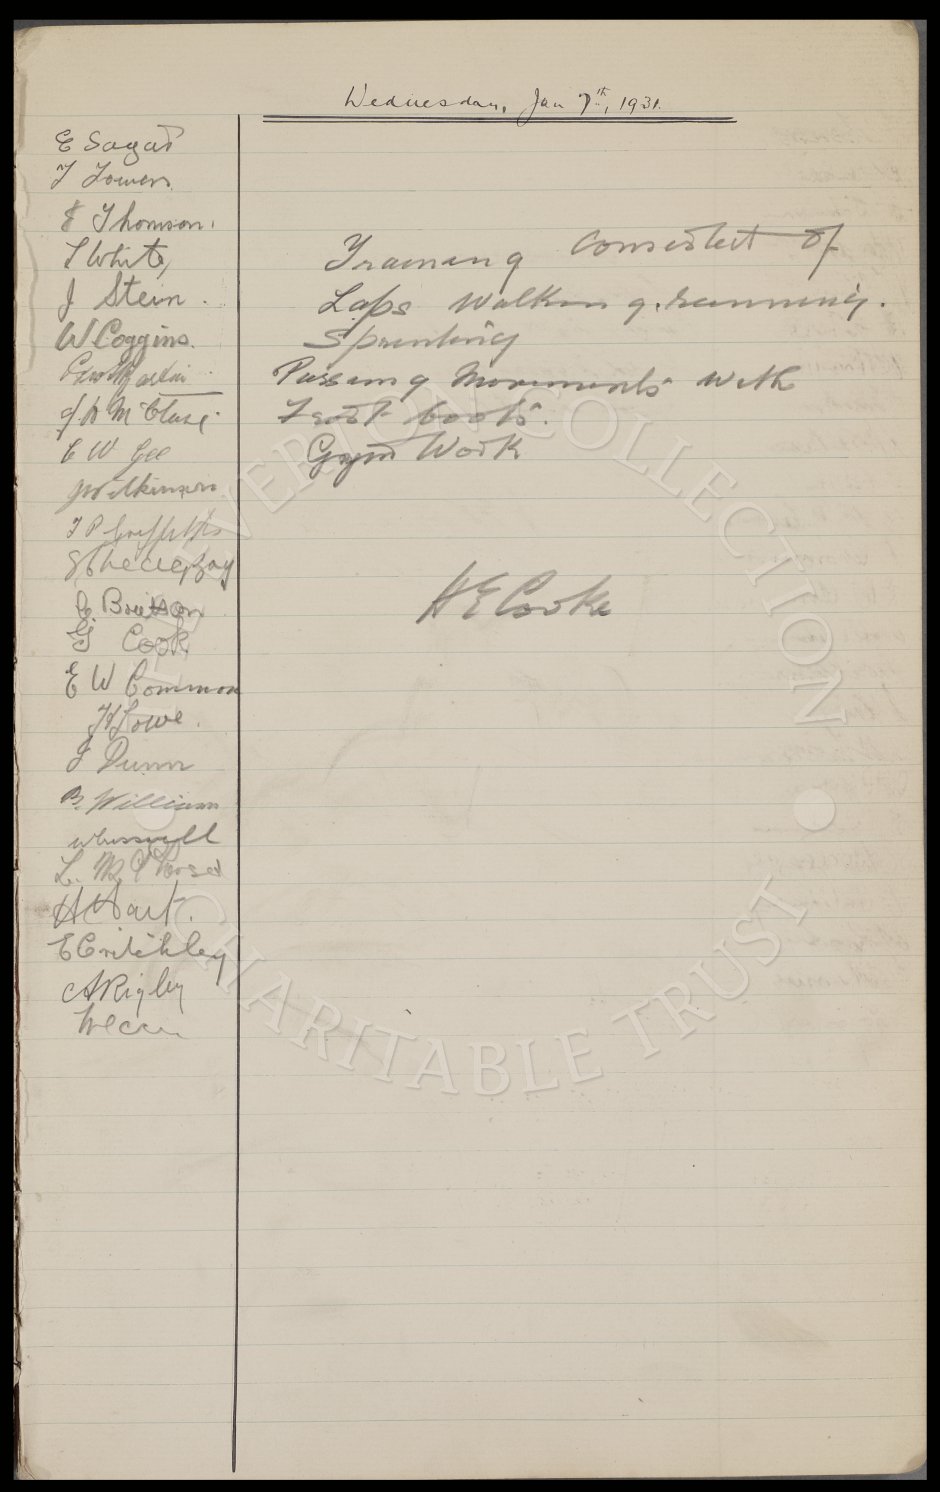 Wednesday, Jan 7th, 1931.
E Sagar
T
J Thomson.
T White,
J Stein.
W Coggins.
Geo Martin
J D McClure
C W Gee
J Wilkinson
T P Griffiths
C Britton
G Cook
E W Common
H Lowe.
J Dunn
B. Williams
H Hart.
E Critchley
A Rigby
Training Consistet of
Laps Walking & running.
Sprinting
Passing Movements with
boots.
Gym Work
H E Cooke
THE EVERTON COLLECTION
CHARITABLE TRUST